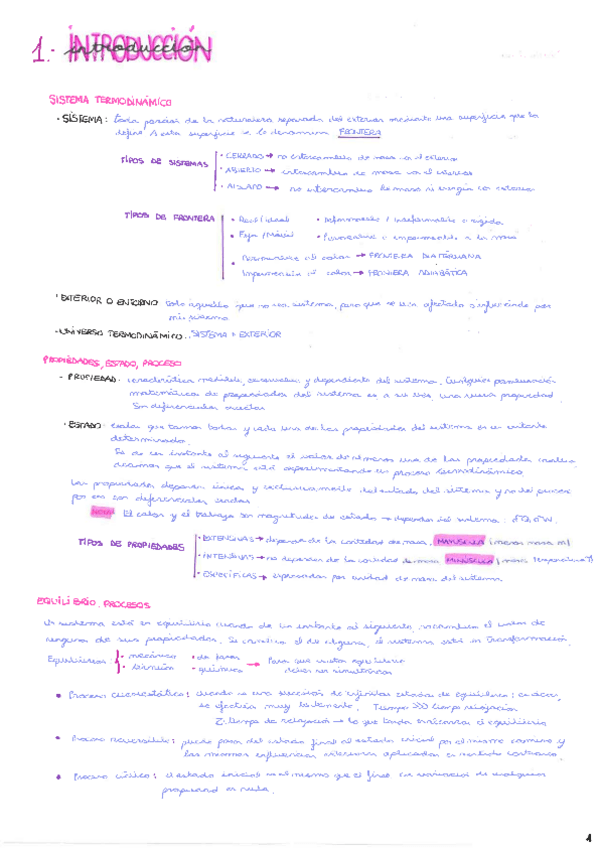 1.- INTRODUCCIÓN
introducción
SISTEMA TERMODINÁMICO
· SISTEMA: toda porción de la naturaleza separada del exterior mediante una superficie que la
define. A esta superficie se le denomina FRONTERA
TIPOS DE SISTEMAS
· CERRADO → no intercambio de masa con el exterior
· ABIERTO → intercambio de masa con el exterior
· AISLADO → no intercambio de masa ni energía con exterior
TIPOS DE FRONTERA
· Real / ideal · Deformable / indeformable o rígida
· Fija / Móvil · Permeable o impermeable a la masa
· Permeable al calor → FRONTERA DIATÉRMANA
Impermeable al calor → FRONTERA ADIABÁTICA
· EXTERIOR O ENTORNO: todo aquello que no es sistema, pero que se ve afectado
mi sistema
- UNIVERSO TERMODINÁMICO: SISTEMA + EXTERIOR
PROPIEDADES, ESTADO, PROCESO
- PROPIEDAD: característica medible, y dependiente del sistema. Cualquier combinación
matemática de propiedades del sistema es a su vez una nueva propiedad.
Son diferenciales exactas
· ESTADO: valor que toman todas y cada una de las propiedades del sistema en un instante
determinado.
Si de un instante al siguiente el valor de al menos una de las propiedades cambia
decimos que el sistema está experimentando un proceso termodinámico.
Las propiedades dependen única y exclusivamente del estado del sistema y no del proceso
por eso son diferenciales exactas
El calor y el trabajo son magnitudes de → dependen del sistema: δQ, δW.
TIPOS DE PROPIEDADES
· EXTENSIVAS → dependen de la cantidad de masa. MAYÚSCULA (menos masa m)
· INTENSIVAS → no dependen de la cantidad de masa. MINÚSCULA (menos temperatura T)
· ESPECÍFICAS → expresadas por unidad de masa del sistema.
EQUILIBRIO, PROCESOS
Un sistema está en equilibrio cuando de un instante al siguiente, no cambia el valor de
ninguna de sus propiedades. Si cambia el de alguna, el sistema está en transformación.
Equilibrios: · mecánico · de fases → Para que exista equilibrio
· térmico · químico deben ser simultáneos
• Proceso cuasiestático: cuando es una sucesión de infinitos estados de equilibrio; es decir,
se efectúa muy lentamente. Tiempo >>> tiempo relajación
tiempo de relajación → lo que tarda en alcanzar el equilibrio
• Proceso reversible: puede pasar del estado final al estado inicial por el mismo camino y
las mismas influencias exteriores aplicadas en sentido contrario.
• Proceso cíclico: el estado inicial es el mismo que el final. La variación de cualquier
propiedad es nula.
1